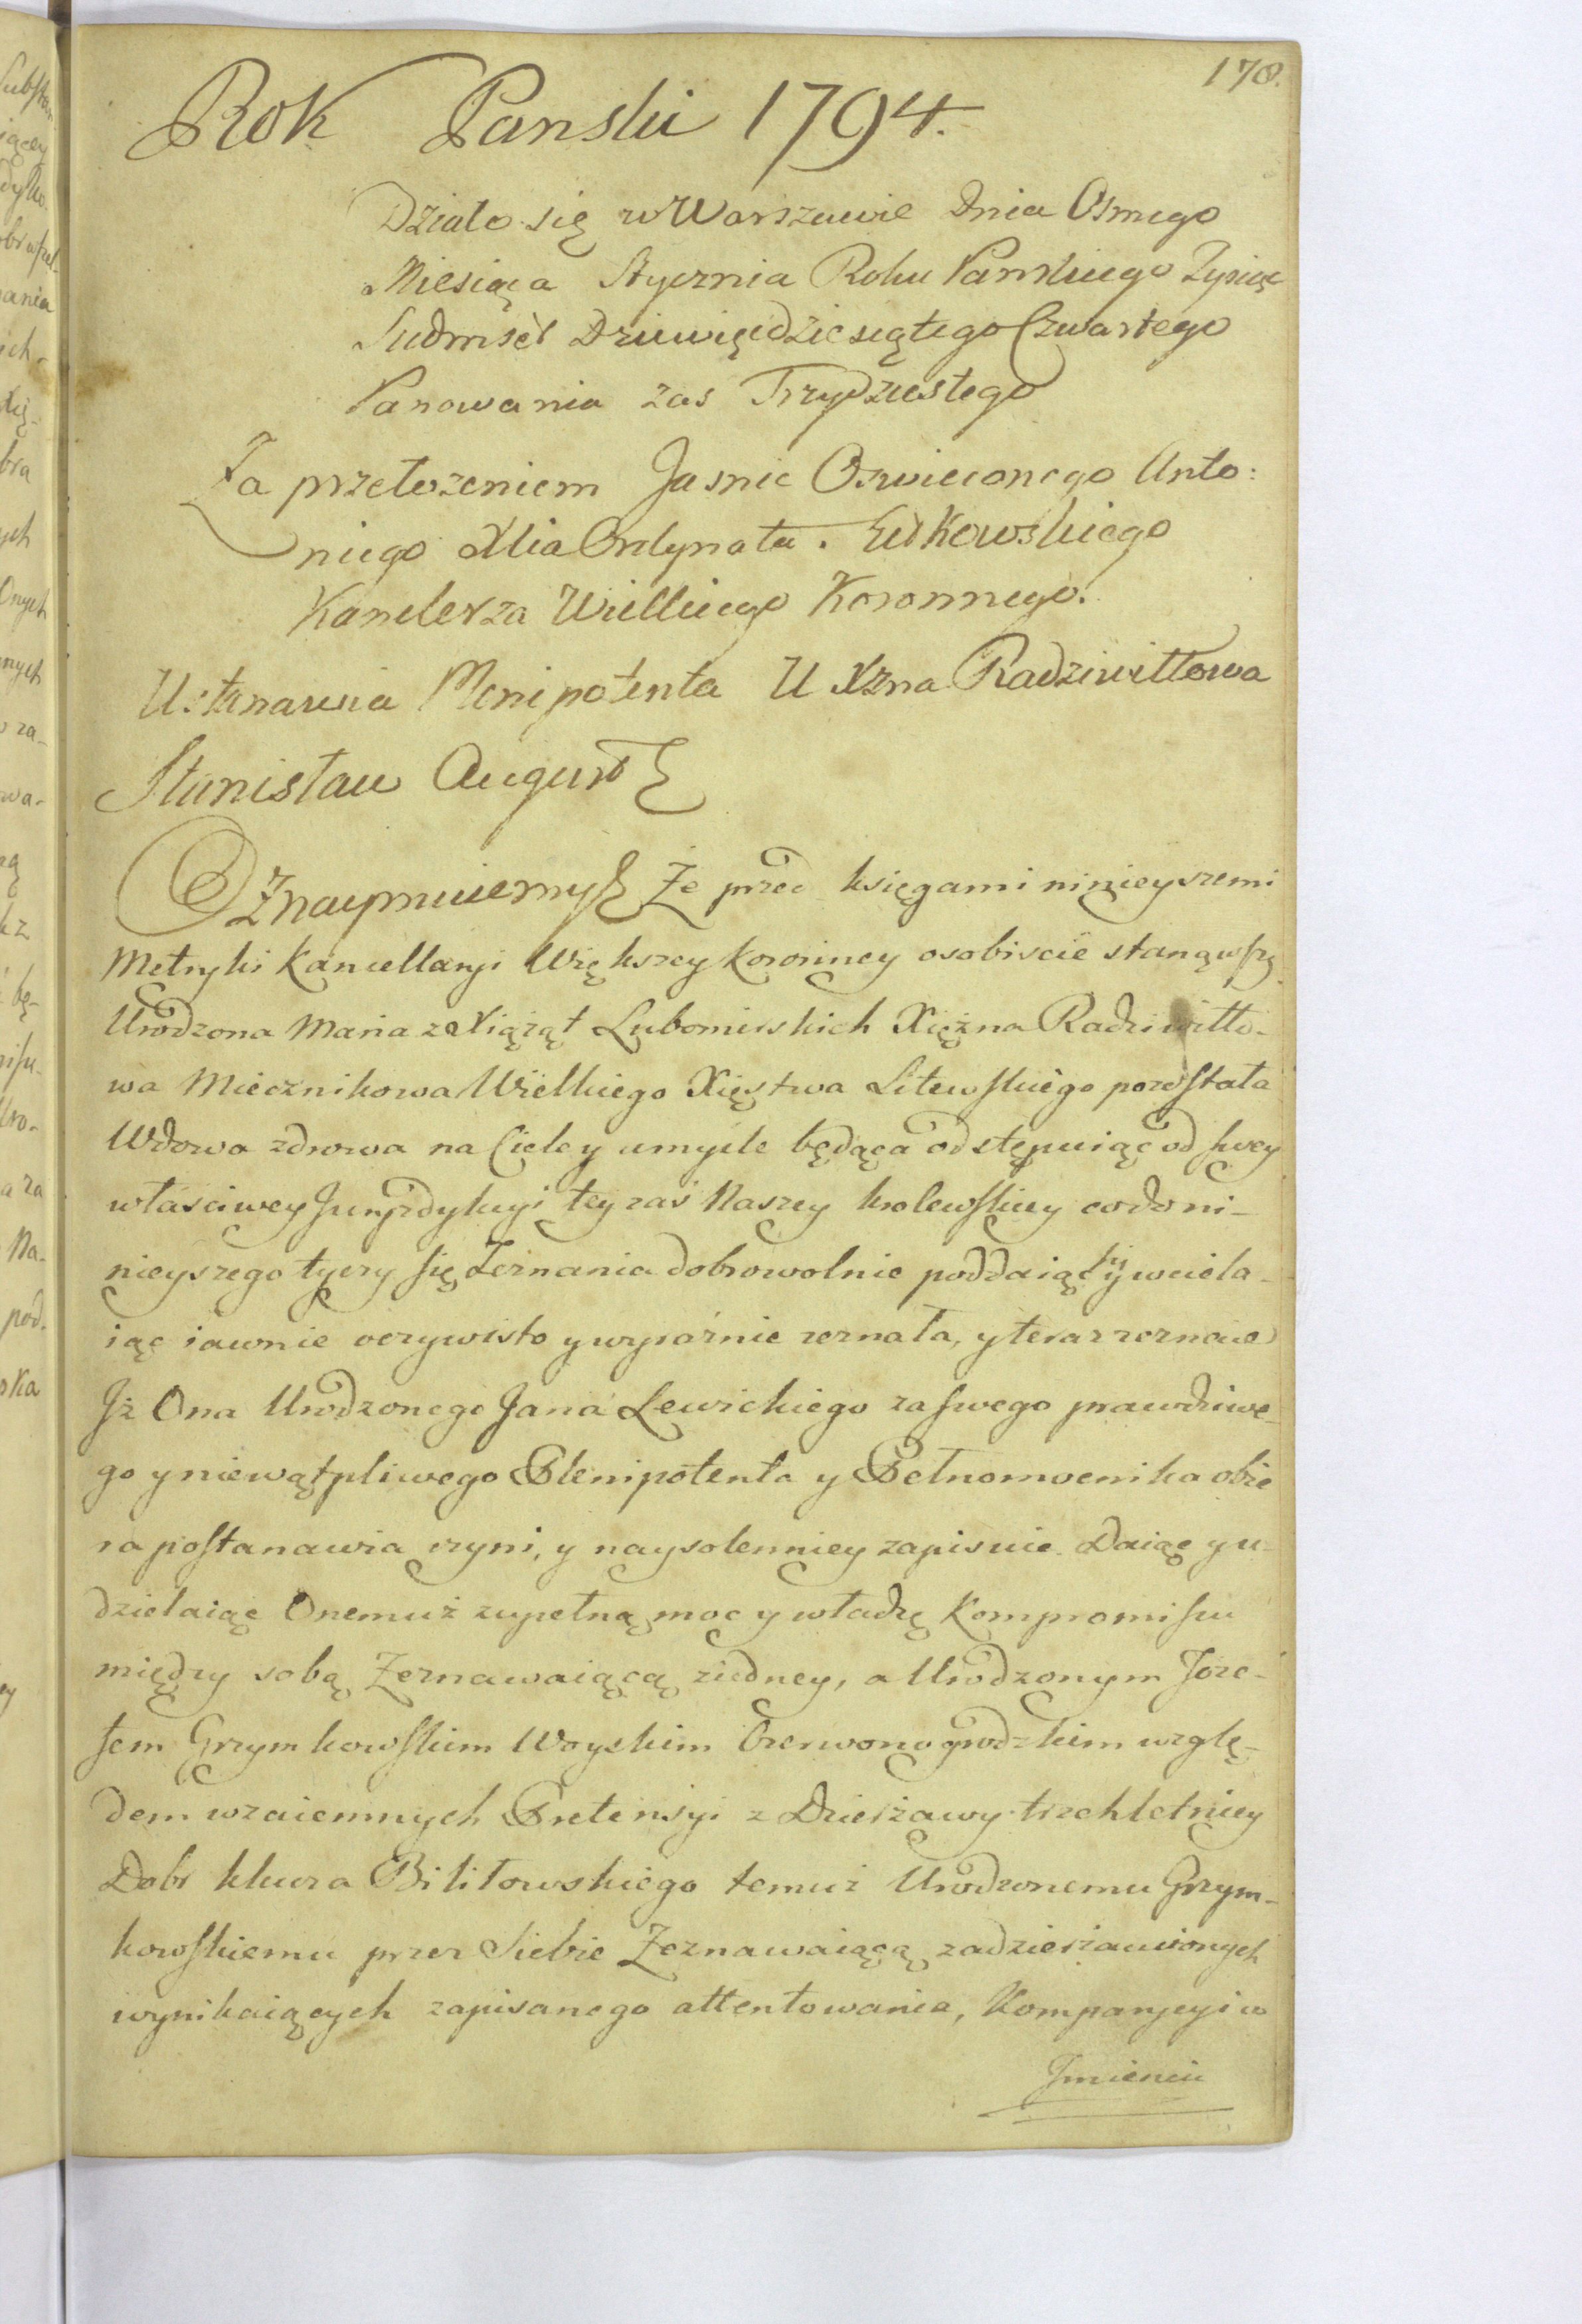 178.
Rok Panski 1794.
Działo się w Warszawie Dnia Osmego
Miesiąca Stycznia Roku Panskiego Tysiąc
Siedmset Dziewięćdziesiątego Czwartego
Panowania zas Trzydziestego
Za przełozeniem Jasnie Oswieconego Anto:
niego Xcia Ordynata Sułkowskiego
Kanclerza Wielkiego Koronnego.
Ustanawia Plenipotenta U Xzna Radziwiłłowa
Stanisław August
Oznaymuiemy Że przed księgami ninieyszemi
Metryki Kancellaryi Większey Koronney osobiscie stanąwszy
Urodzona Maria z Xiążąt Lubomirskich Xiężna Radziwiłło-
wa Miecznikowa Wielkiego Xięstwa Litewskiego pozostała
Wdowa zdrowa na Ciele y umysle będąca odstępuiąc od swey
własciwey Juryzdykcyi tey zaś Naszey krolewskiey co do ni-
nieyszego tyczy się Zeznania dobrowolnie poddaiąc się y wciela-
iąc iawnie oczywisto y wyraźnie zeznała, y teraz zeznaie
Jż Ona Urodzonego Jana Lewickiego za swego prawdziwe-
go y niewątpliwego Plenipotenta y Pełnomocnika obie
ra postanawia czyni, y naysolenniey zapisuie. Daiąc y u-
dzielaiąc Onemuż zupełną moc y władzę Kompromissu
między sobą Zeznawaiącą ziedney, a Urodzonym Joze-
fem Grzymkowskim Woyskim Czerwonogrodzkim wzglę-
dem wzaiemnych Pretensyi z Dzierżawy trzechletniey
Dobr klucza Bilitowskiego temuż Urodzonemu Grzym-
kowskiemu przez Siebie Zeznawaiącą zadzierżawionych
wynikaiących zapisanego attentowania, Komparycyi w
Jmieniu